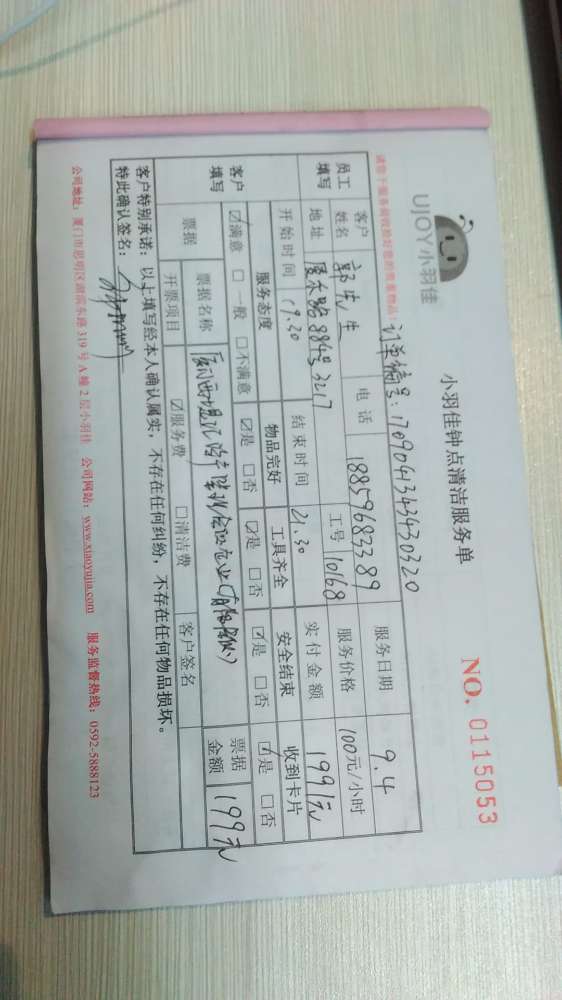 UJOY小羽佳
小羽佳钟点清洁服务单
NO. 0115053
订单编号:17090413434430320
员工填写
客户姓名 电话 18859683389 服务日期 9.4
地址 884号3217 工号 10168 服务价格 100元/小时
开始时间 19.30 结束时间 21.30 实付金额 199元
客户填写
服务态度 物品完好 工具齐全 安全结束 收到卡片
☑满意 □一般 □不满意 ☑是 □否 ☑是 □否 ☑是 □否 ☑是 □否
票据 票据名称 票据金额 199元
开票项目 ☑服务费 □清洁费 客户签名
客户特别承诺:以上填写经本人确认属实,不存在任何纠纷,不存在任何物品损坏。
特此确认签名:
公司地址:厦门市思明区湖滨东路319号A幢2层小羽佳 公司网站:www.xiaoyujia.com 服务监督热线:0592-5888123